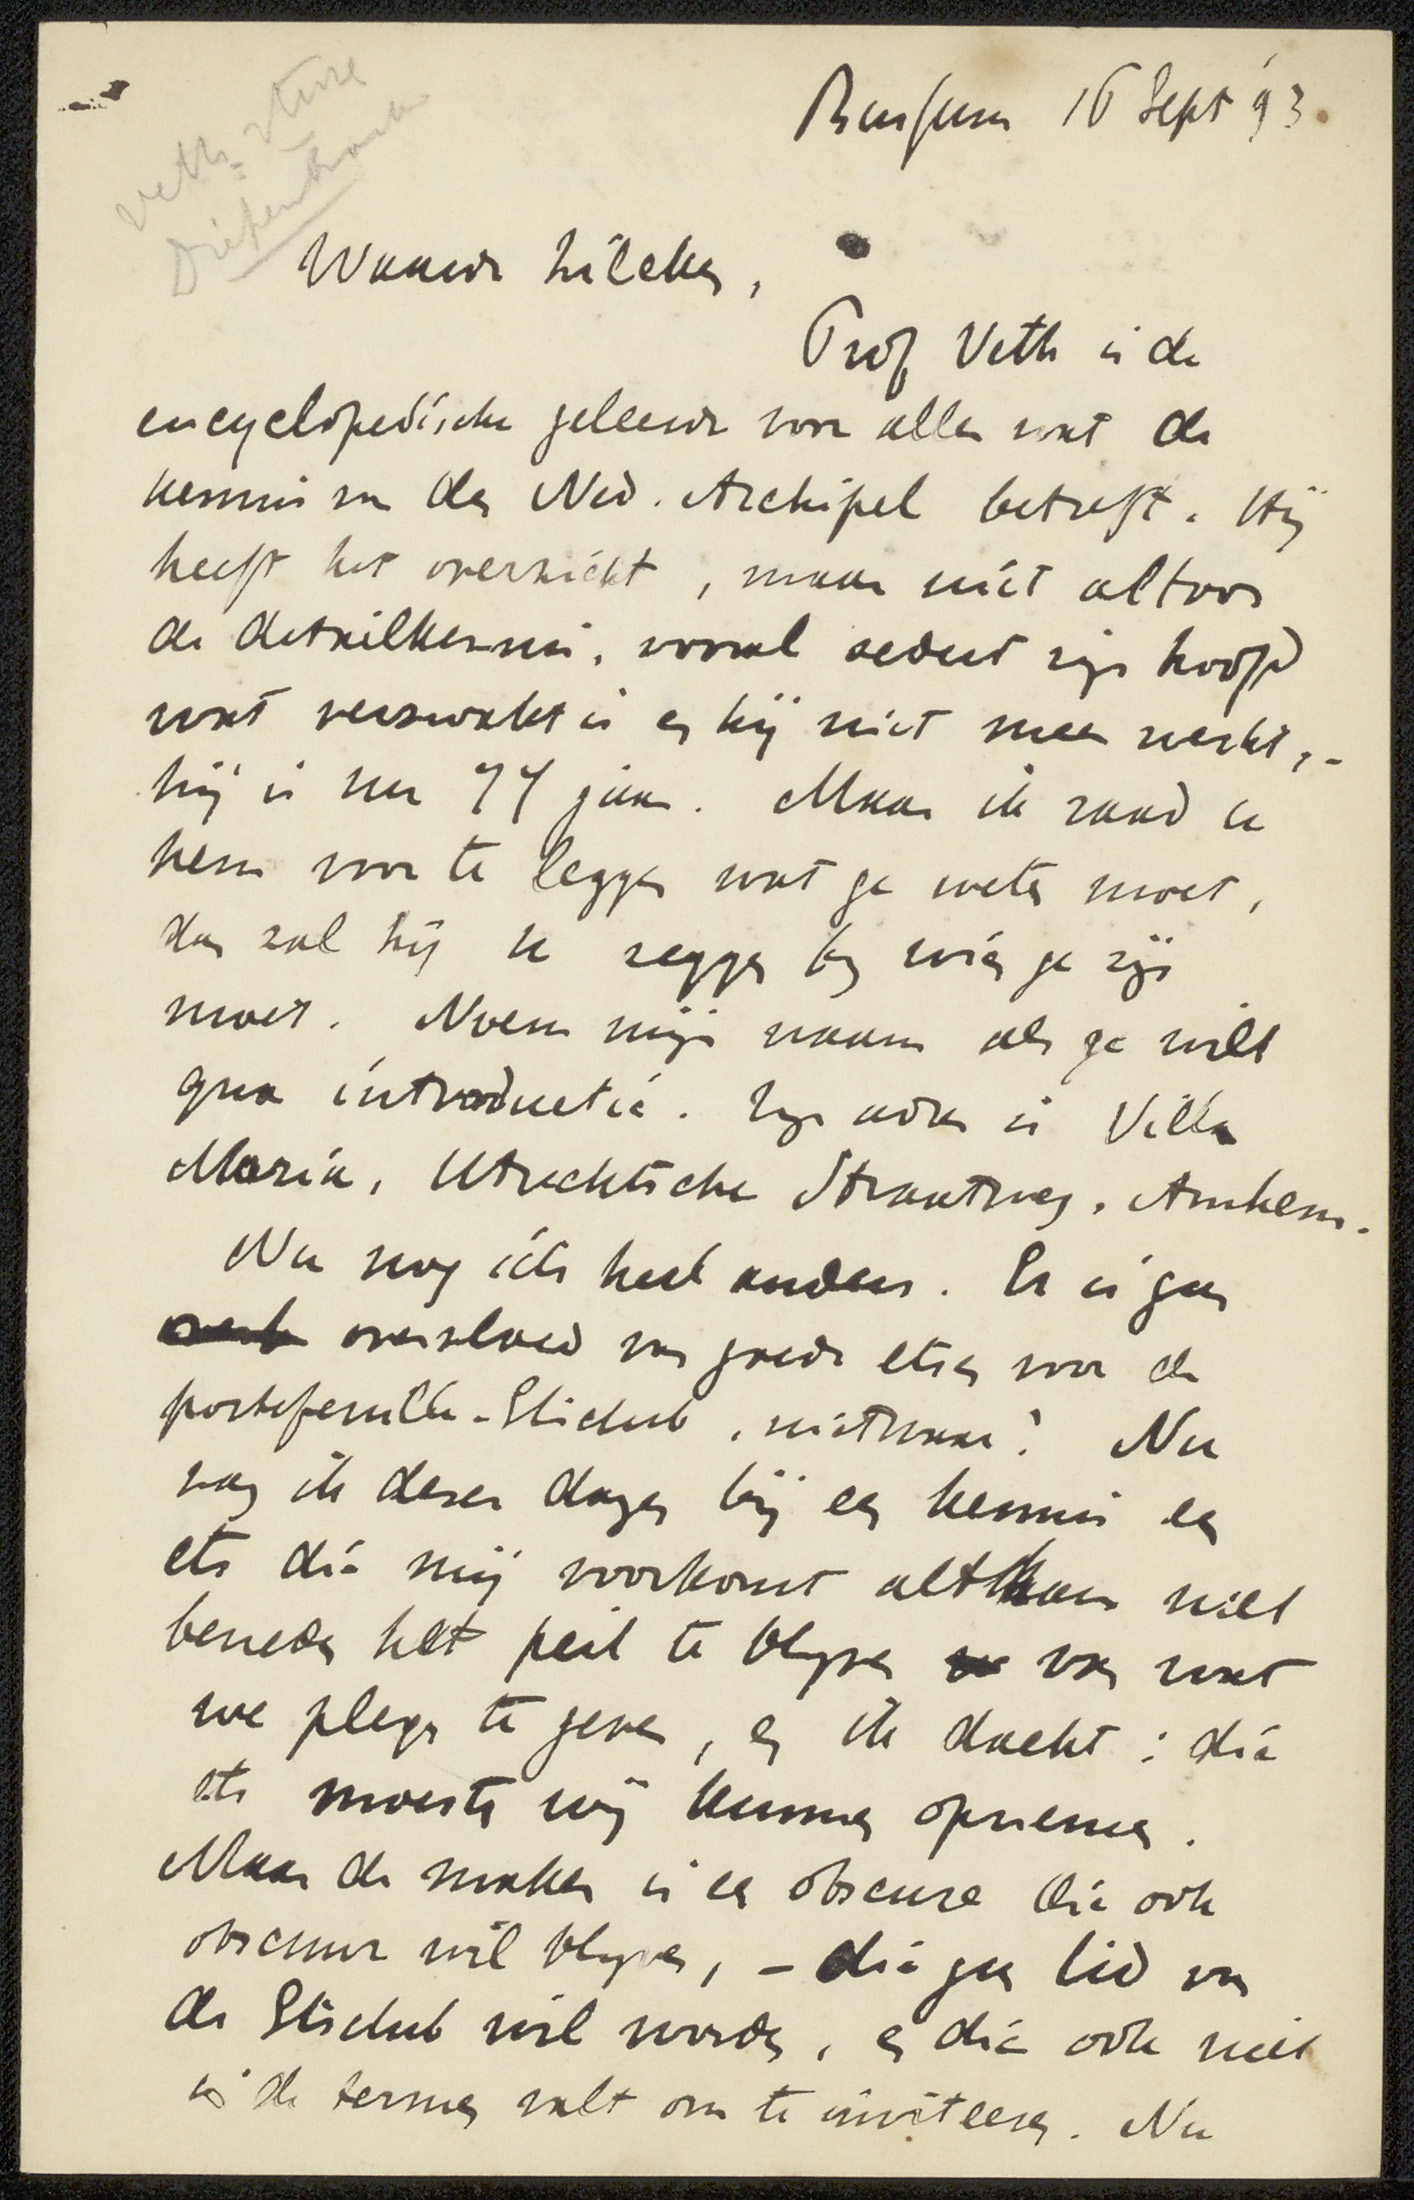 Veth-
Diepenbrock
Bussum 16 Sept '93.
Waarde Zilcken,
Prof Veth is de
encyclopedische geleerde voor alles wat de
kennis van den Ned. Archipel betreft. Hij
heeft het overzicht, maar niet altoos
de detailkennis, vooral sedert zijn hoofd
wat verzwakt is en hij niet meer werkt, -
hij is nu 79 jaar. Maar ik raad u
hem voor te leggen wat ge weten moet,
dan zal hij u zeggen bij wien ge zijn
moet. Noem mijn naam als ge wilt
qua introductie. Zijn adres is Villa
Maria, Utrechtsche Straatweg, Arnhem.
Nu nog iets heel anders. Er is geen
overvloed van goede etsen voor de
portefeuille-Etsclub, nietwaar? Nu
zag ik dezer dagen bij een kennis een
ets die mij voorkomt althans niet
beneden het peil te blijven van wat
we plegen te geven, en ik dacht: die
ets moesten wij kunnen opnemen.
Maar de maker is een obscure die ook
obscuur wil blijven, - die geen lid van
de Etsclub wil worden, en die ook niet
in de termen valt om te inviteeren. Nu